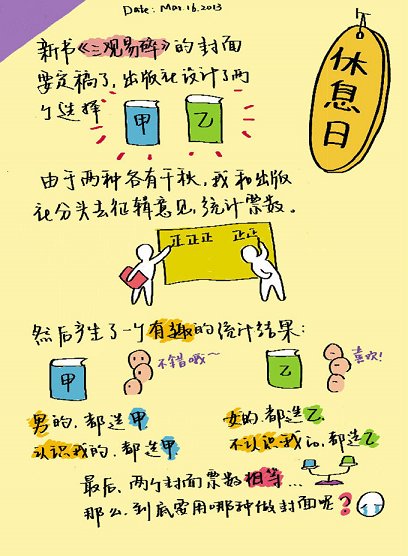 Date: Mar.16.2013
休息日
新书《三观易碎》的封面
要定稿了,出版社设计了两
个选择
甲
乙
由于两种各有千秋,我和出版
社分头去征辑意见,统计票数。
正正正 正正
然后产生了一个有趣的统计结果:
甲
不错哦~
乙
喜欢!
男的,都选甲
女的,都选乙
认识我的,都选甲
不认识我的,都选乙
最后,两个封面票数相等...
那么,到底要用哪种做封面呢?